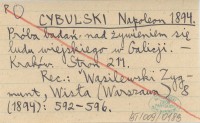 CYBULSKI Napoleon 1894.
Próba badań nad żywieniem się
ludu wiejskiego w Galicji. —
Kraków. Stron 211.
Rec.: Wąsilewski Zyg-
munt, Wisła (Warszawa) 8
(1894): 592-596.